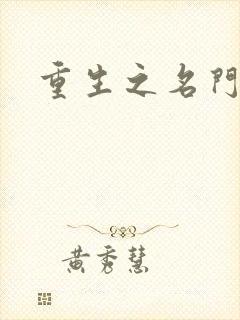 重生之名門
黃秀慧